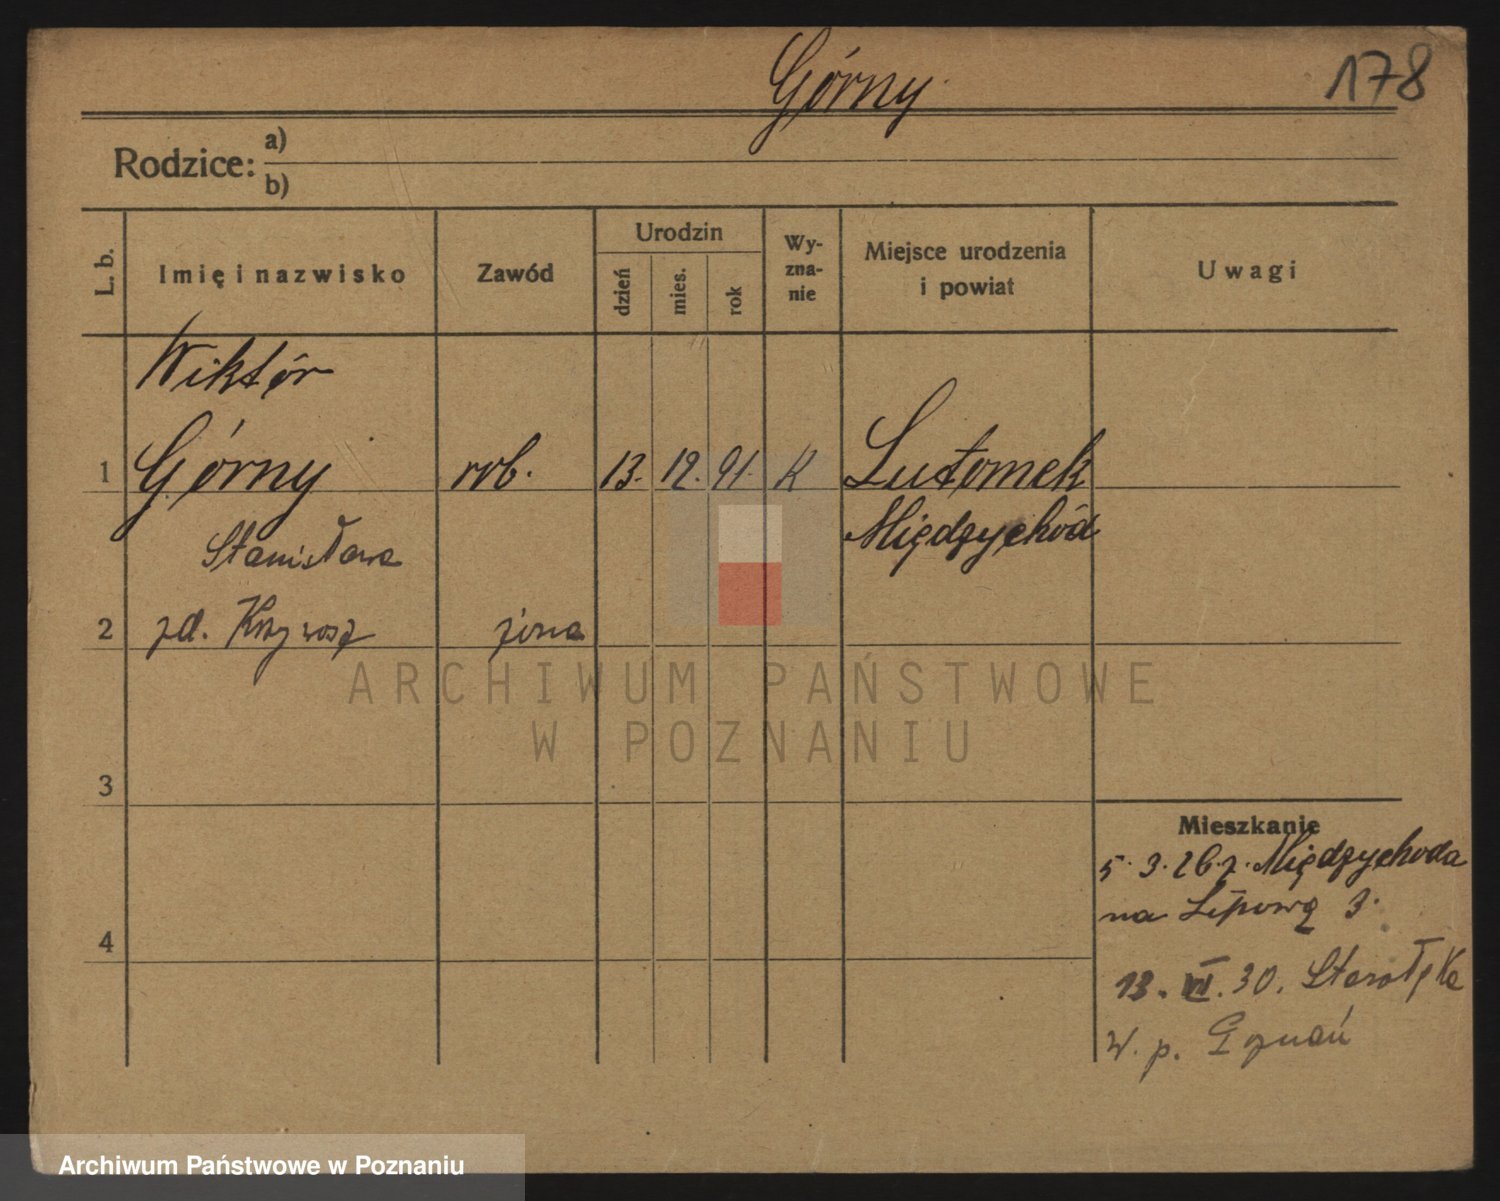 Górny
178
Rodzice: a)
b)
L. b. Imię i nazwisko Zawód Urodzin dzień mies. rok Wy-zna-nie Miejsce urodzenia i powiat Uwagi
Wiktór
1 Górny rob. 13. 12. 91. K Lutomek
Międzychód
Stanisława
2 zd. żona
3
Mieszkanie
5. 3. 26. z. Międzychoda
na Lipową 3.
4
13. VII. 30. Starołęka
W. p. Poznań
ARCHIWUM PAŃSTWOWE
W POZNANIU
Archiwum Państwowe w Poznaniu